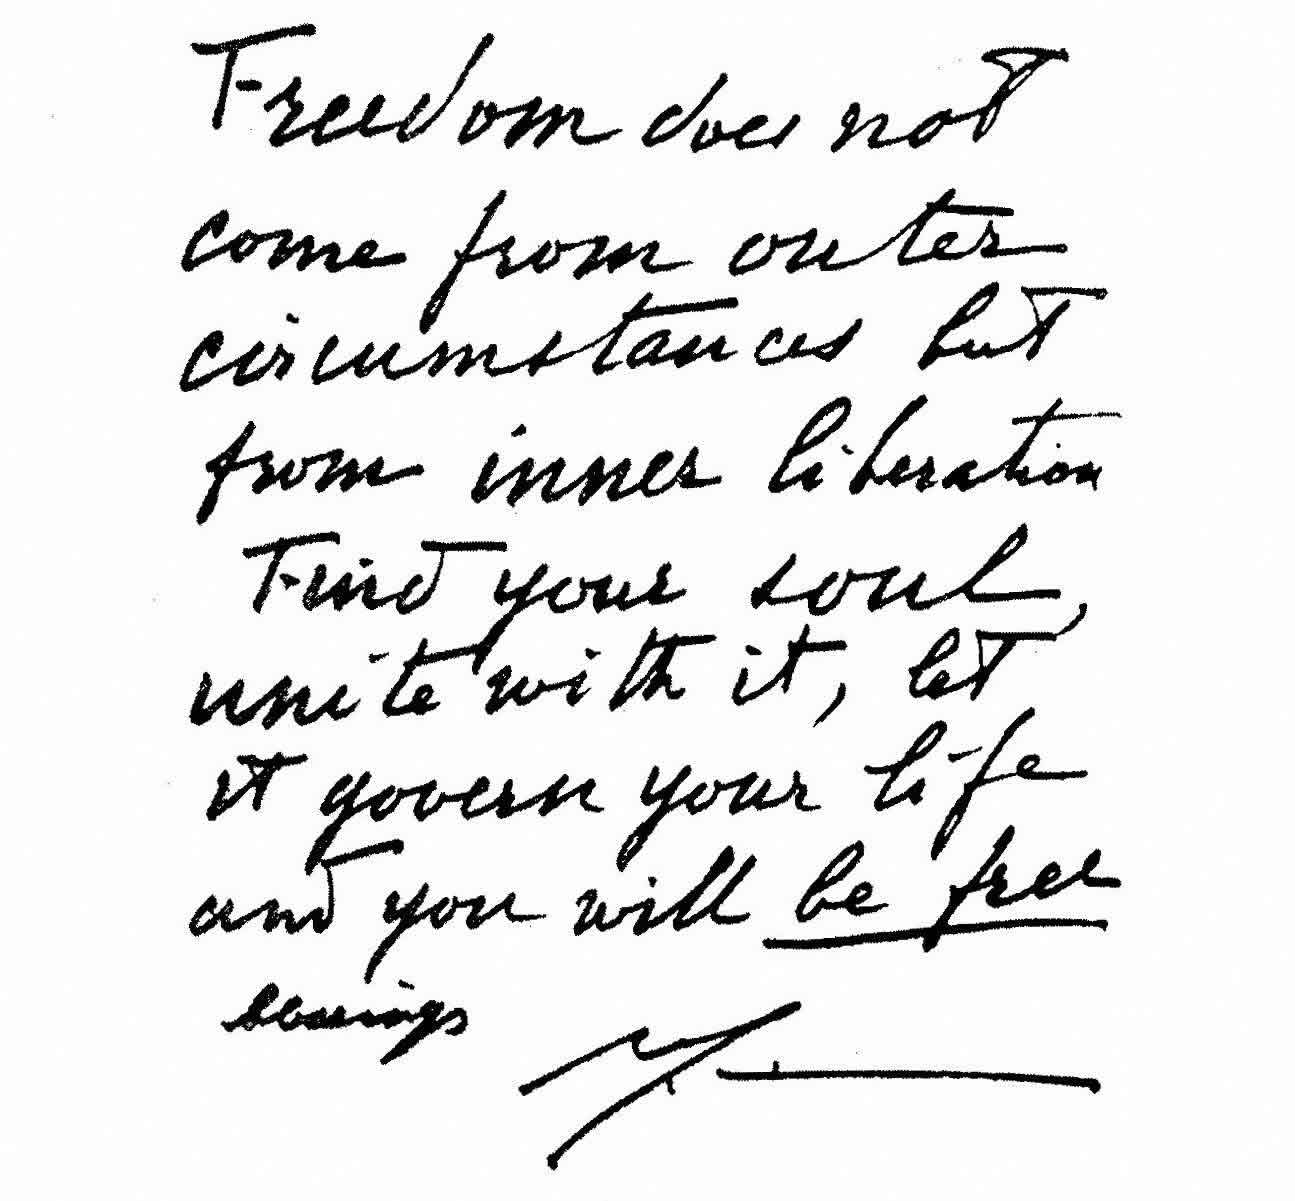 Freedom does not
come from outer
circumstances but
from inner liberation
Find your soul,
unite with it, let
it govern your life
and you will be free
blessings